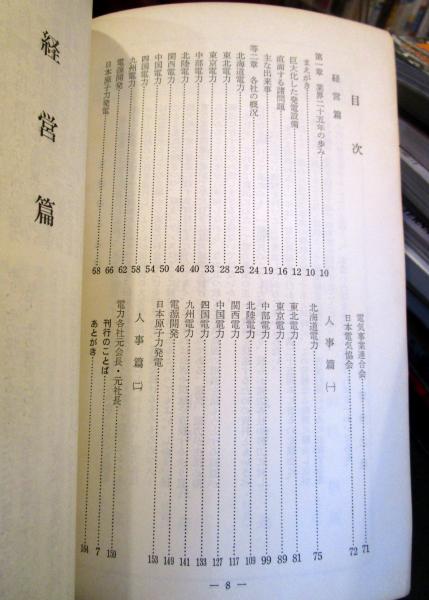 目次
経営篇
第一章 業界二十五年の歩み……10
まえがき……10
巨大化した発電設備……12
直面する諸問題……16
主な出来事……19
等二章 各社の概況……24
北海道電力……25
東北電力……28
東京電力……33
中部電力……40
北陸電力……46
関西電力……50
中国電力……54
四国電力……58
九州電力……62
電源開発……66
日本原子力発電……68
電気事業連合会……71
日本電気協会……72
人事篇(一)
北海道電力……75
東北電力……81
東京電力……89
中部電力……99
北陸電力……109
関西電力……117
中国電力……127
四国電力……133
九州電力……141
電源開発……149
日本原子力発電……153
人事篇(二)
電力各社元会長・元社長……159
刊行のことば……7
あとがき……164
— 8 —
経営篇